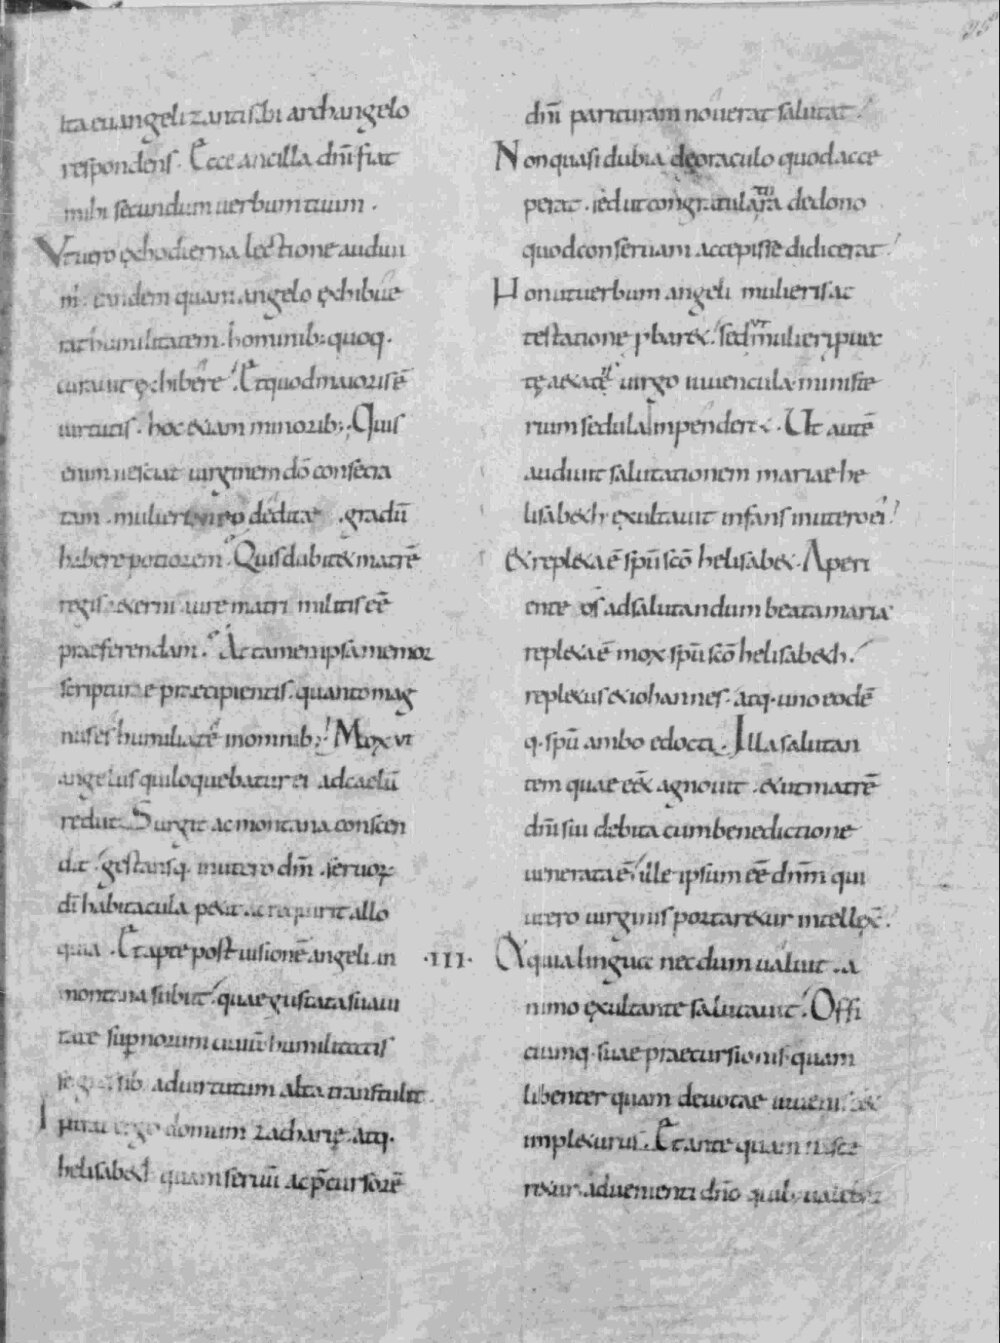 ita euangelizanti sibi archangelo
respondens. Ecce ancilla dn̄i fiat
mihi secundum uerbum tuum.
Vt uero ęx hodierna lectione audiui
m̄. eandem quam angelo ęxhibue
rat humilitatem. hominib; quoq.
curauit ęxhibere. Et quod maioris ē
uirtutis. hoc etiam minorib; Quis
enim nesciat uirginem dō consecra
tam. mulieri uiro deditae. gradū
habere potiorem. Quis dubitet matrē
regis aeterni iure matri militis eē
praeferendam. At tamen ipsa memor
scripturae praecipientis. quanto mag
nus es humilia te in omnib; Mox ut
angelus qui loquebatur ei ad caelū
rediit. Surgit ac montana conscen
dit. gestansq. in utero dn̄m. seruorꝝ
dī habitacula petit. ac requirit allo
quia. Et apte post uisionē angeli in
montana subiit. quae gustata suaui
tate suꝑnorum ciuiū humilitatis
se gressib; ad uirtutum alta transtulit.
Intrat ergo domum zacharię. atq.
helisabeth quam seruū ac p̄cursorē
dn̄i parituram nouerat salutat.
Non quasi dubia de oraculo quod acce
perat. sed ut congratulatura de dono
quod conseruam accepisse didicerat.
Non ut uerbum angeli mulieris at
testatione ꝓbaret. sed ut mulieri puec
tę aetatis uirgo iuuencula ministe
rium sedula impenderet. Ut autē
audiuit salutationem mariae he
lisabeth exultauit infans in utero ei'.
et repleta ē sp̄u scō helisabet. Aperi
ente os ad salutandum beata maria
repleta ē mox sp̄u scō helisabeth.
repletus et iohannes. atq. uno eodē
q. sp̄u ambo edocti. Illa salutan
tem quae eēt agnouit. et ut matrē
dn̄i sui debita cum benedictione
uenerata ē. ille ipsum eē dn̄m qui
utero uirginis portaretur intellex̄.
·III· Et quia lingua necdum ualuit. a
nimo exultante salutauit. Offi
ciumq. suae praecursionis. quam
libenter quam deuotae iuuenis
impleturus. Et ante quam nasce
retur. aduenienti dn̄o quib;